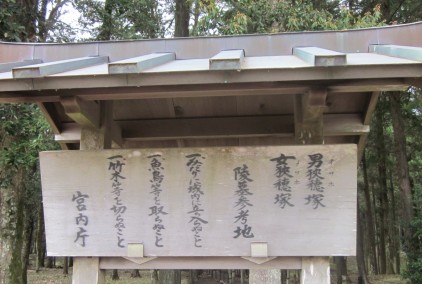 男狭穂塚
女狭穂塚
陵墓参考地
一、みだりに域内に立入らぬこと
一、魚鳥等を取らぬこと
一、竹木等を切らぬこと
宮内庁